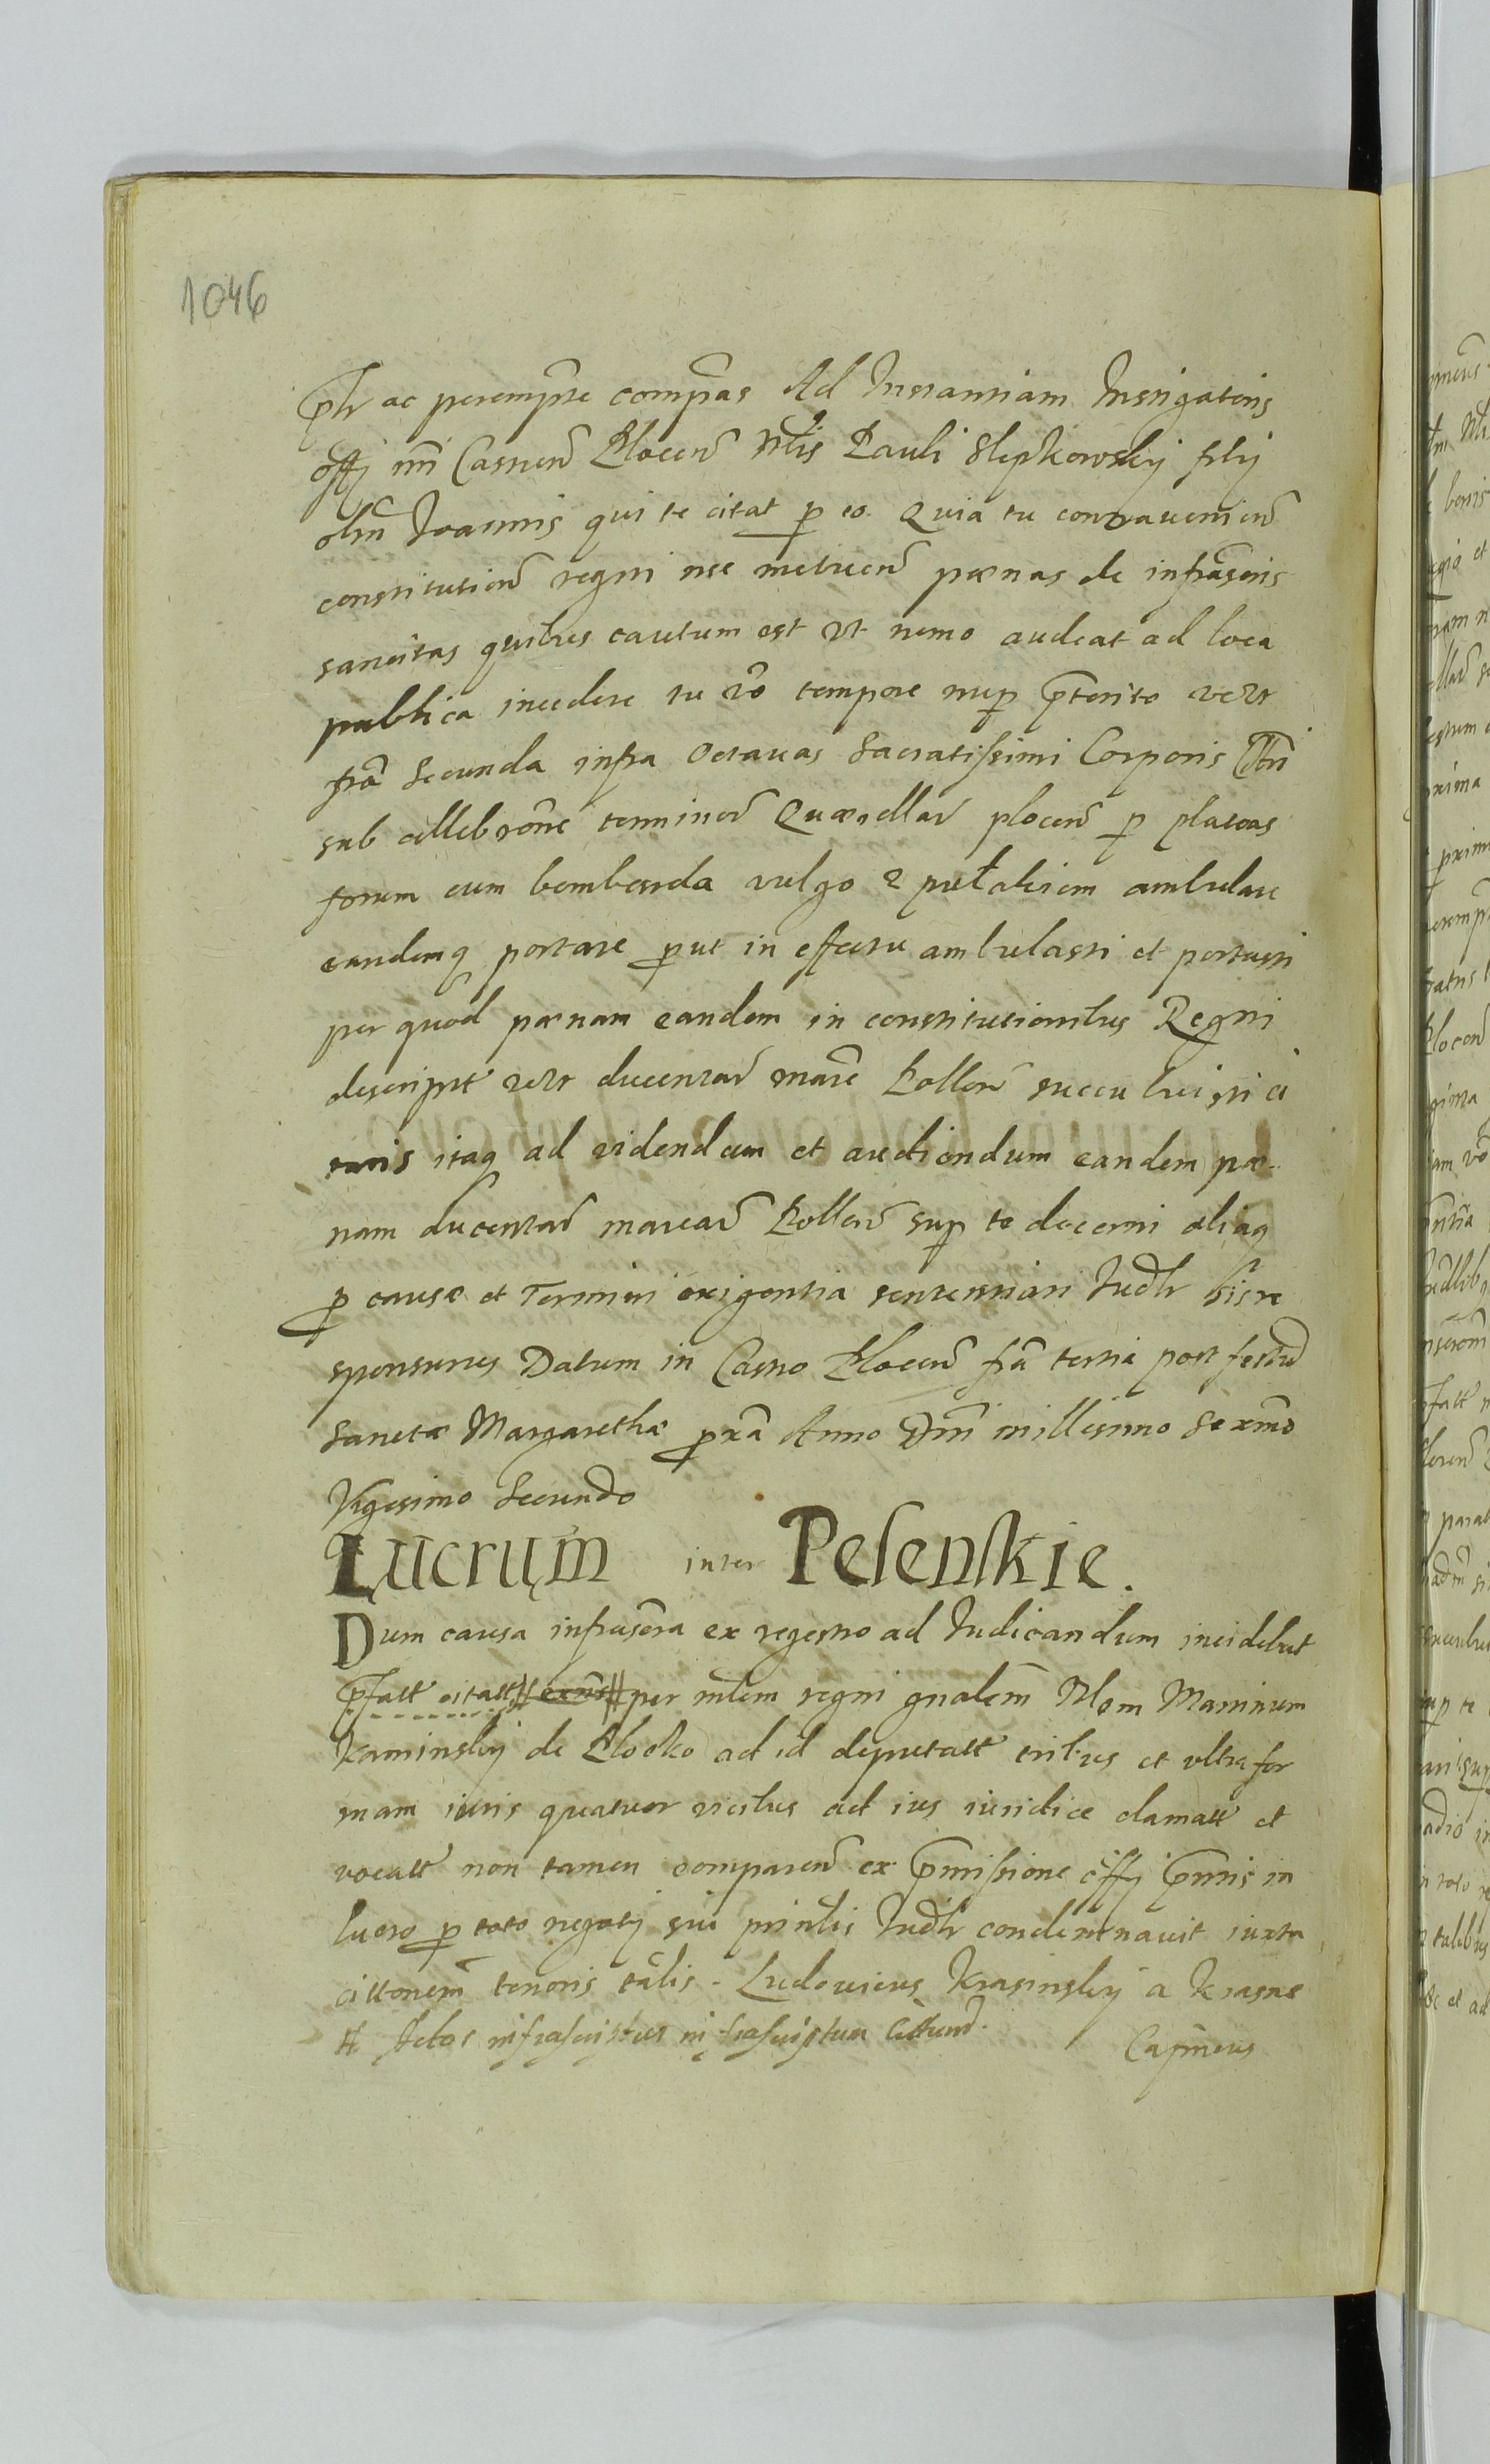 1046
Pntr ac peremptrie compas Ad Instantiam Instigatoris
offi nri Castren Plocen Nlis Pauli Slepkowskij filij
olim Joannis qui te citat p eo Quia tu contraveniend
constitution regni nec metuend pœnas de infrascris
sancitas quibus cautum est vt nemo audeat ad loca
publica incedere tu vo tempore nup pterito velut
fria Secunda infra Octavas Sacratissimi Corporis Chri
sub cellebrone terminor Quærellar plocen p plateas
forum cum bombarda vulgo z puł ambulare
eandemq portare put in effectu ambulasti et portasti
per quod pœnam eandem in constitutionibus Regni
descript velut ducentar marc Pollon succubuisti ci
taris itaq ad videndum et audiendum eandem pœ-
nam ducentar marcar Pollon sup te decerni aliaq
p causæ et Termini exigentia sententiari Judlr his re
sponsurus Datum in Castro Plocen fria tertia post festum
Sanctæ Margarethæ pxa Anno Dni millesimo Sexcmo
Vigesimo Secundo
Lucrum inter Pelenskie.
Dum causa infrascra ex regestro ad Judicandum incidebat
Pfatt citatt# exns # per mlem regni gnalem Nlem Martinum
Kaminskij de Plocko ad id deputatt tribus et vltra for
mam iuris quatuor vicibus ad ius iuridice clamatt et
vocatt non tamen comparen ex pmissione offi pntis in
lucro p toto negotij sui printlis Judlr condemnavit iuxta
cittonem tenoris talis. Ludovicus Krasinskij a Krasne
# Actor infrascriptus infrascriptum Citatum.
Castineus